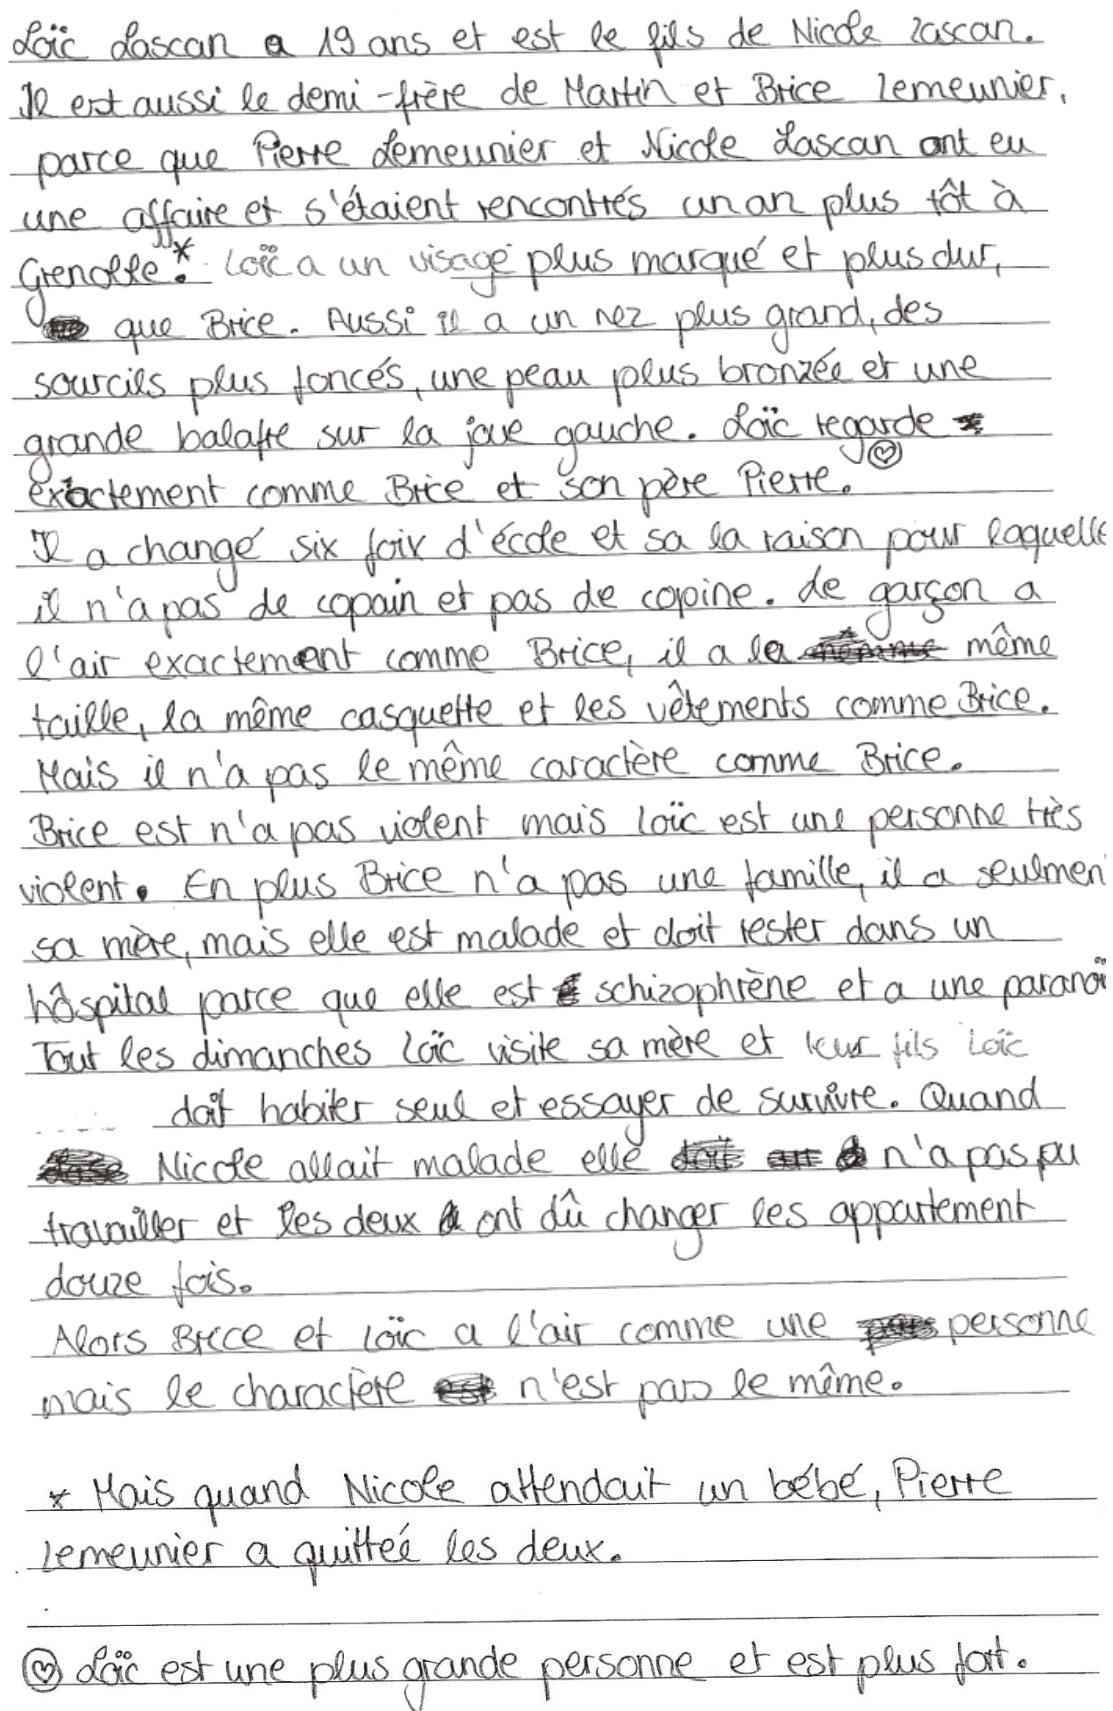 Loïc Lascan a 19 ans et est le fils de Nicole Lascan.
Il est aussi le demi-frère de Martin et Brice Lemeunier,
parce que Pierre Lemeunier et Nicole Lascan ont eu
une affaire et s'étaient rencontrés un an plus tôt à
Grenoble.* Loïc a un visage plus marqué et plus dur,
que Brice. Aussi il a un nez plus grand, des
sourcils plus foncés, une peau plus bronzée et une
grande balafre sur la joue gauche. Loïc regarde
exactement comme Brice et son père Pierre.
Il a changé six foix d'école et sa la raison pour laquelle
il n'a pas de copain et pas de copine. Le garçon a
l'air exactement comme Brice, il a la même
taille, la même casquette et les vêtements comme Brice.
Mais il n'a pas le même caractère comme Brice.
Brice est n'a pas violent mais Loïc est une personne très
violent. En plus Brice n'a pas une famille, il a seulmen
sa mère, mais elle est malade et doit rester dans un
hôspital parce que elle est schizophrène et a une paranoï
Tout les dimanches Loïc visite sa mère et leur fils Loïc
doit habiter seul et essayer de survivre. Quand
Nicole allait malade elle n'a pas pu
travailler et les deux ont dû changer les appartement
douze fois.
Alors Brice et Loïc a l'air comme une personne
mais le charactère n'est pas le même.
* Mais quand Nicole attendait un bébé, Pierre
Lemeunier a quitteé les deux.
♡ Loïc est une plus grande personne et est plus fort.